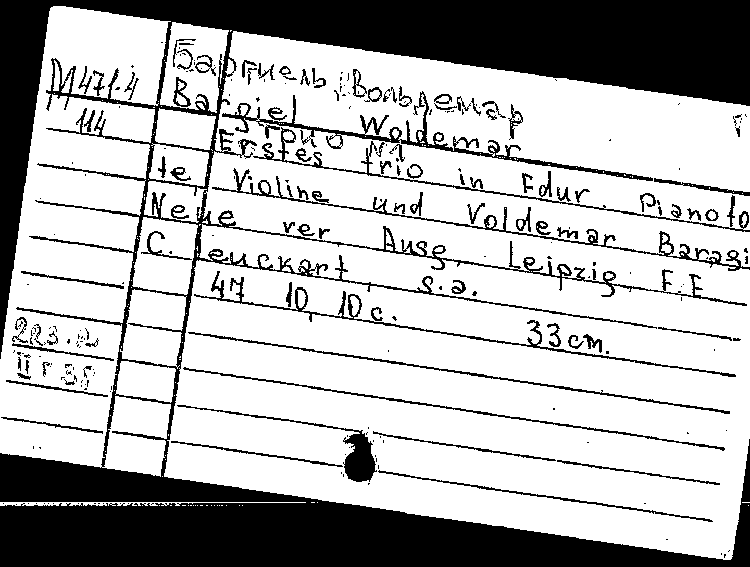 Баргиель, Вольдемар
М471.4 Bargiel Woldemar
114 трио N1
Erstes trio in Fdur. Pianofo
te, Violine und Voldemar Baragi
Neue ver. Ausg. Leipzig, F.E
C. Leuckart, s.a.
47 10, 10 c. 33 cm.
223.р
II г 38